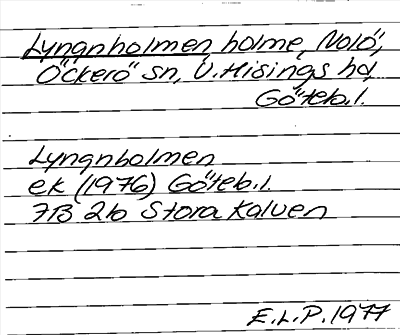 Lyngnholmen, holme, Nolö,
Öckerö sn, V. Hisings hd,
Göteb. l.
Lyngnholmen
ek (1976) Göteb. l.
7B 2b Stora Kalven
E.L.P. 1977